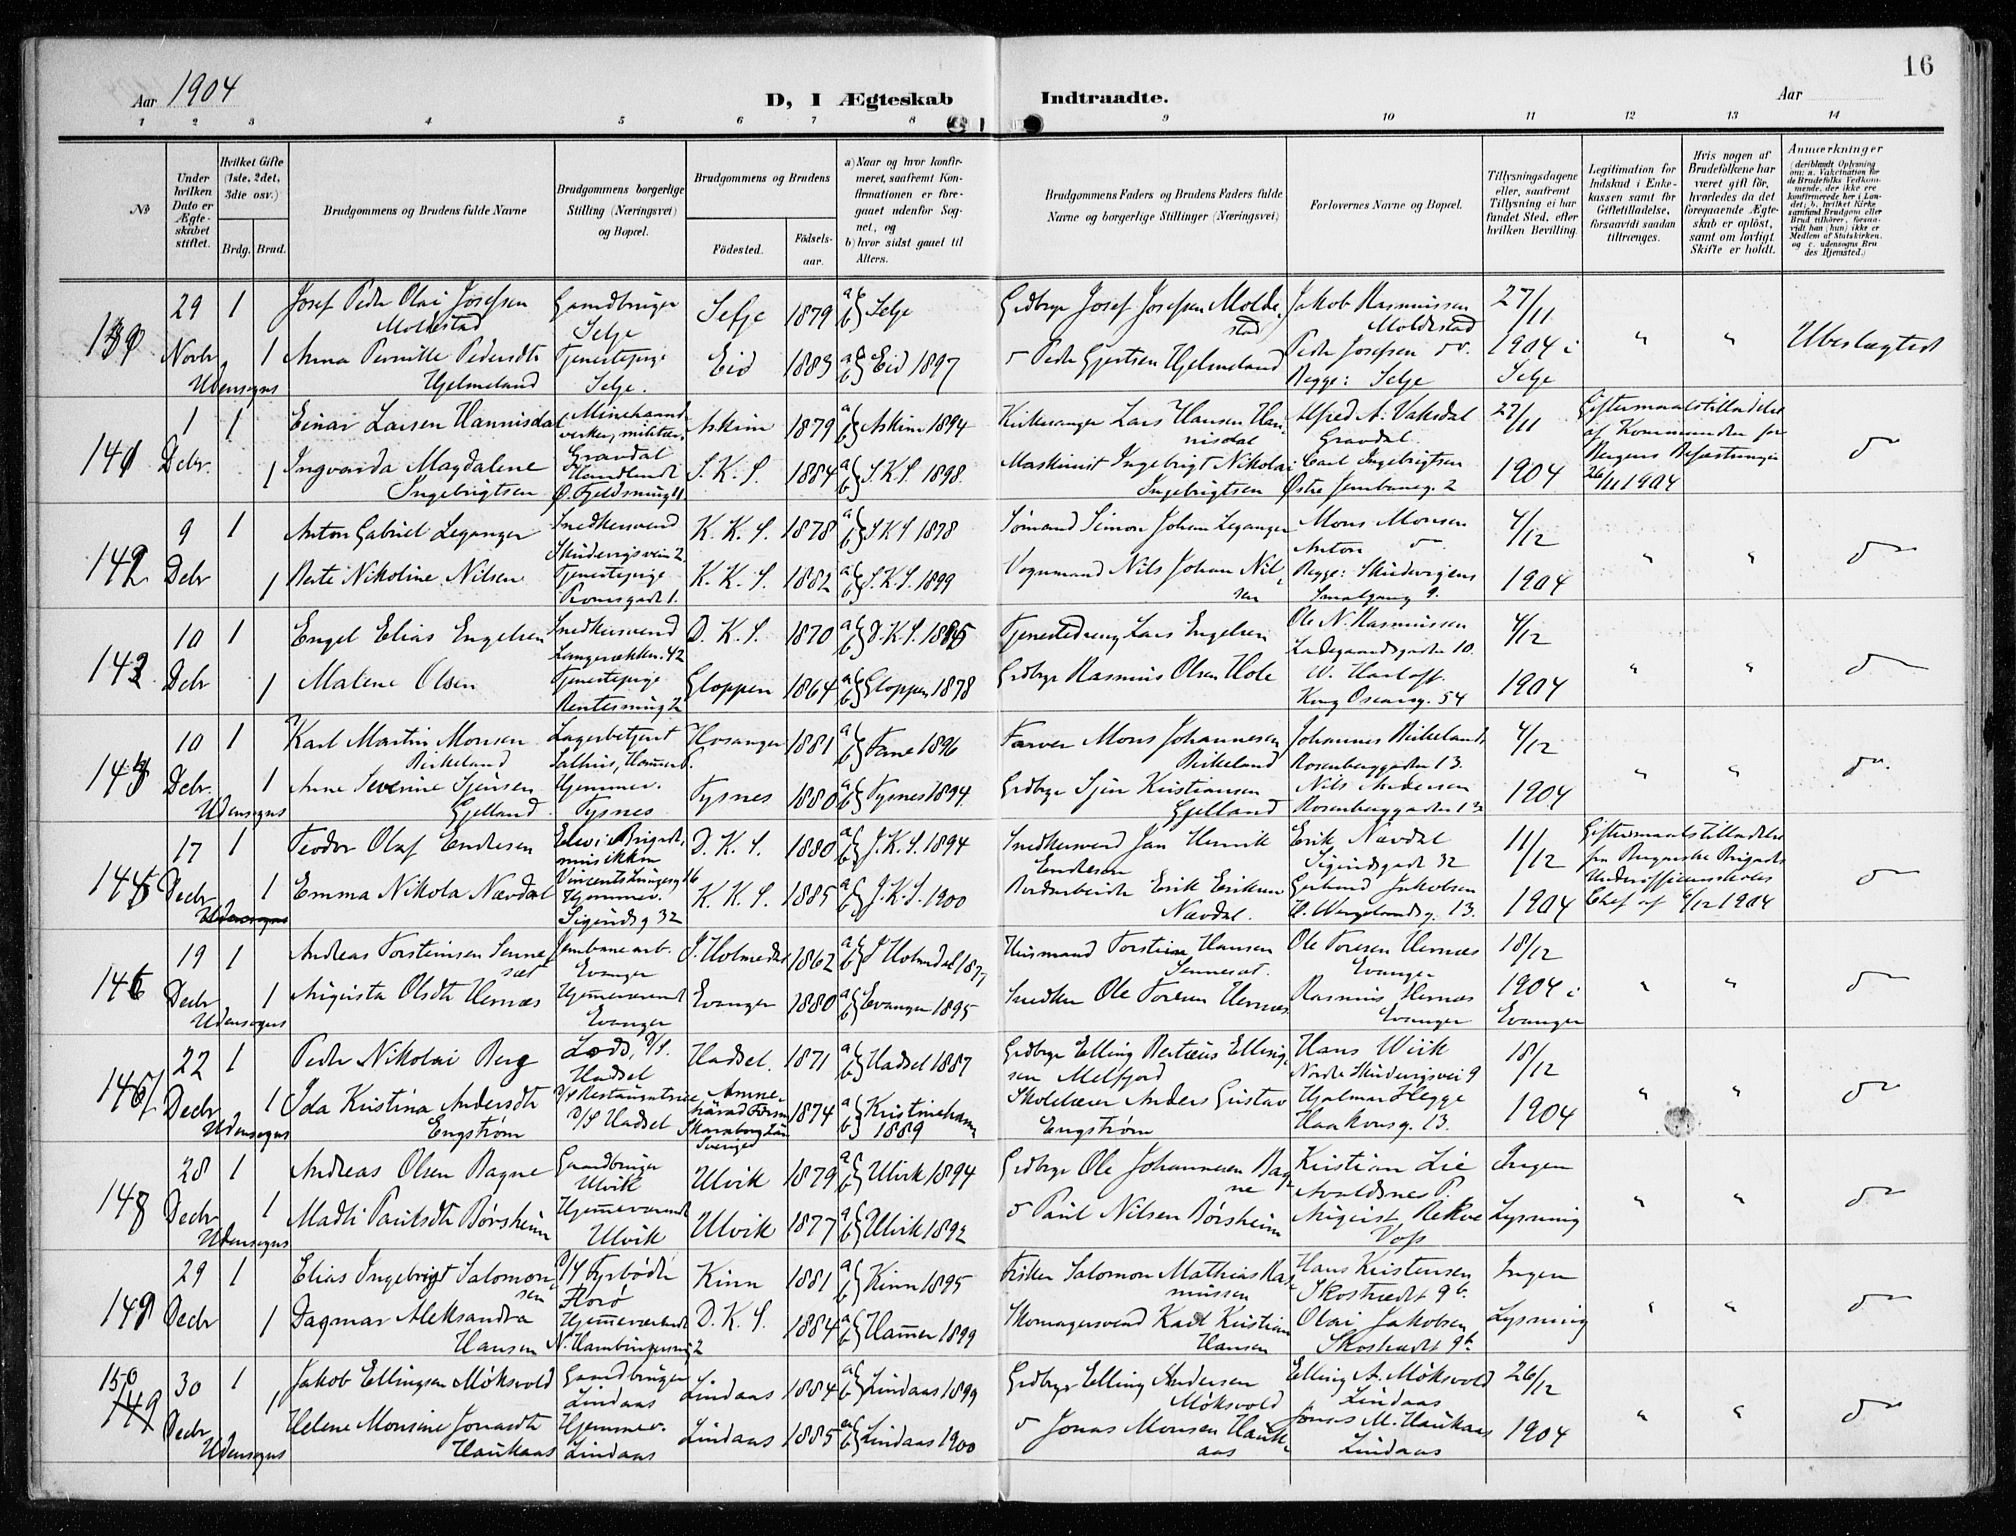 16
Aar 1904
D, I Ægteskab Indtraadte.
Aar
1 2 3 4 5 6 7 8 9 10 11 12 13 14
No
Under hvilken Dato er Ægteskabet stiftet.
Hvilket Gifte (1ste, 2det, 3die osv.)
Brdg. Brud.
Brudgommens og Brudens fulde Navne
Brudgommens borgerlige Stilling (Næringsvei) og Bopæl.
Brudgommens og Brudens
Fødested.
Fødselsaar.
a) Naar og hvor konfirmeret, saafremt Konfirmationen er foregaaet udenfor Sognet, og
b) hvor sidst gaaet til Alters.
Brudgommens Faders og Brudens Faders fulde Navne og borgerlige Stillinger (Næringsvei)
Forlovernes Navne og Bopæl.
Tillysningsdagene eller, saafremt Tillysning ei har fundet Sted, efter hvilken Bevilling.
Legitimation for Indskud i Enkekassen samt for Giftetilladelse, forsaavidt saadan tiltrænges.
Hvis nogen af Brudefolkene har været gift før, hvorledes da det foregaaende Ægteskab er opløst, samt om lovligt Skifte er holdt.
Anmærkninger
(deriblandt Oplysning om: a. Vakcination for de Brudefolks Vedkommende, der ikke ere konfirmerede her i Landet; b. hvilket Kirkesamfund Brudgom eller Brud tilhører, forsaavidt han (hun) ikke er Medlem af Statskirken, og c. udensogns Brudes Hjemsted.)
29 1 Josef Peder Olai Josefsen Moldestad Gaardbruger Selje Selje 1879 a b Selje Grdbrgr Josef Josefsen Moldestad Jakob Rasmussen Moldestad 27/11
Novbr 1 Anna Pernille Pedersdtr Hjelmeland Tjenestepige Selje. Eid 1883 a b Eid 1897 Peder Gjertsen Hjelmeland Peder Josefsen Begge: Selje 1904 i Selje " " Ubeslægtede
Udensogns
1 1 Einar Larsen Hannisdal Minehaandverker, militær, Gravdal Askim 1879 a b Askim 1894 Kirkesanger Lars Hansen Hannisdal Alfred A. Vaksdal Gravdal. 27/11 Giftermaalstilladelse af Kommandanten for Bergens Befæstninger 26/11 1904
Debr. 1 Ingvarda Magdalene Ingebrigtsen Ø. Fjeldsmug 11 S. K. S. 1884 a b S.K.S. 1898. Maskinist Ingebrigt Nikolai Ingebrigtsen Carl Ingebrigtsen Østre Jernbaneg. 2 1904
142 9 1 Anton Gabriel Leganger Snedkersvend Skudevigsvein 2 K. K. S. 1878 a b S K S 1878 Sømand Simon Johan Leganger Mons Monsen Anton 4/12
Debr 1 Berte Nikoline Nilsen Tjenestepige K. K. S. 1882 a b S.K.S. 1899 Vognmand Nils Johan Nilsen Begge: Skudevigens Smalgang 9. 1904 " "
143 10 1 Engel Elias Engelsen Snedkersvend Langerækken 42 D. K. S. 1870 a b D.K.S. 1885 Tjenestedreng Lars Engelsen Ole N. Rasmussen Ladegaardsgaden 10. 4/12
Debr 1 Malene Olsen Tjenestepige Gloppen 1864 a b Gloppen 1878 Grdbrgr Rasmus Olsen Hole W. Harloff Kong Oscarsg. 54 1904 " "
10 1 Karl Martin Monsen Birkeland Lagerbetjent Salhus, Hammer Hosanger 1881 a b Fane 1896 Farver Mons Johannesen Birkeland Johannes Birkeland Rosenberggaden 13. 4/12
Debr. 1 Anne Severine Sjursen Gjelland Hjemmev. Tysnes Tysnes 1880 a b Tysnes 1894. Grdbrgr Sjur Kristiansen Gjelland Nils Andersen Rosenberggaden 13 1904 " "
Udensogns
145 17 1 Teodor Olaf Endresen Elev i Brigademusikken D. K. S. 1880 a b J.K.S. 1894 Snedkersvend Jan Henrik Endresen Erik Nævdal Sigurdsgade 32 11/12 Giftermaalstilladelse fra Bergenske Brigades Underofficersskoles Chef af 6/12 1904
Decbr 1 Emma Nikola Nævdal Hjemmev. Sigurdsg 32 K. K. S. 1885 a b J.K.S. 1900 Erik Eriksen Nævdal. Gerhard Jakobsen H. Wergelandsg. 13. 1904
Udensogns
146 19 1 Andreas Torsteinsen Sennesæt Jernbanearb. Evanger I. Holmedal 1862 a b I Holmedal 1877 Husmand Torstein Hansen Sennesæt. Ole Toresen Hernæs Evanger 18/12
Decbr 1 Augusta Olsdtr Hernæs Hjemmeværende Evanger Evanger 1880 a b Evanger 1895 Snedker Ole Toresen Hernæs Rasmus Hernæs Evanger 1904 i Evanger " "
Udensogns
22 1 Peder Nikolai Berg Lods, D/S. Hadsel Hadsel 1871 a b Hadsel 1887 Grdbrgr Elling Berteus Ellingsen Melfjord Hans Wiik Nordre Skudevigsvei 9 18/12
Decbr 1 Ida Kristina Andersdtr Engström D/S Restauratrice D/S Hadsel Amnehärad Skaraborg Län Sverige 1874 a b Kristinehamn 1889 Skolelærer Anders Gustav Engström Hjalmar Hegge Haakonsg. 13. 1904 " "
Udensogns
148 28 1 Andreas Olsen Bagne Gaardbruger Ulvik Ulvik 1879 a b Ulvik 1894 Grdbrgr Ole Johannesen Bagne Kristian Lie Avaldsnes P. Ingen
Decbr 1 Madli Paulsdtr Børsheim Hjemmeværende Ulvik Ulvik 1877 a b Ulvik 1892 Paul Nilsen Børsheim August Rekve Voss Lysning " "
Udensogns
149 29 1 Elias Ingebrigt Salomonsen D/S Fyrbøder Florø Kinn 1881 a b Kinn 1895 Fisker Salomon Mathias Rasmussen Hans Kristensen Skostrædet 9b. Ingen
Decbr 1 Dagmar Aleksandra Hansen Hjemmeværende N. Hamburgersmug 2 D. K. S. 1884 a b Hammer 1899 Skomagersvend Karl Kristian Hansen Olai Jakobsen Skostrædet 9b. Lysning " "
150
149 30 1 Jakob Ellingsen Møksvold Gaardbruger Lindaas Lindaas 1884 a b Lindaas 1899 Grdbrgr Elling Andersen Møksvold Elling A. Møksvold Lindaas 26/12
Decbr 1 Helene Monsine Jonasdtr Haukaas Hjemmev. Lindaas Lindaas 1885 a b Lindaas 1900 Jonas Monsen Haukaas Jonas M. Haukaas Lindaas 1904 " "
Udensogns